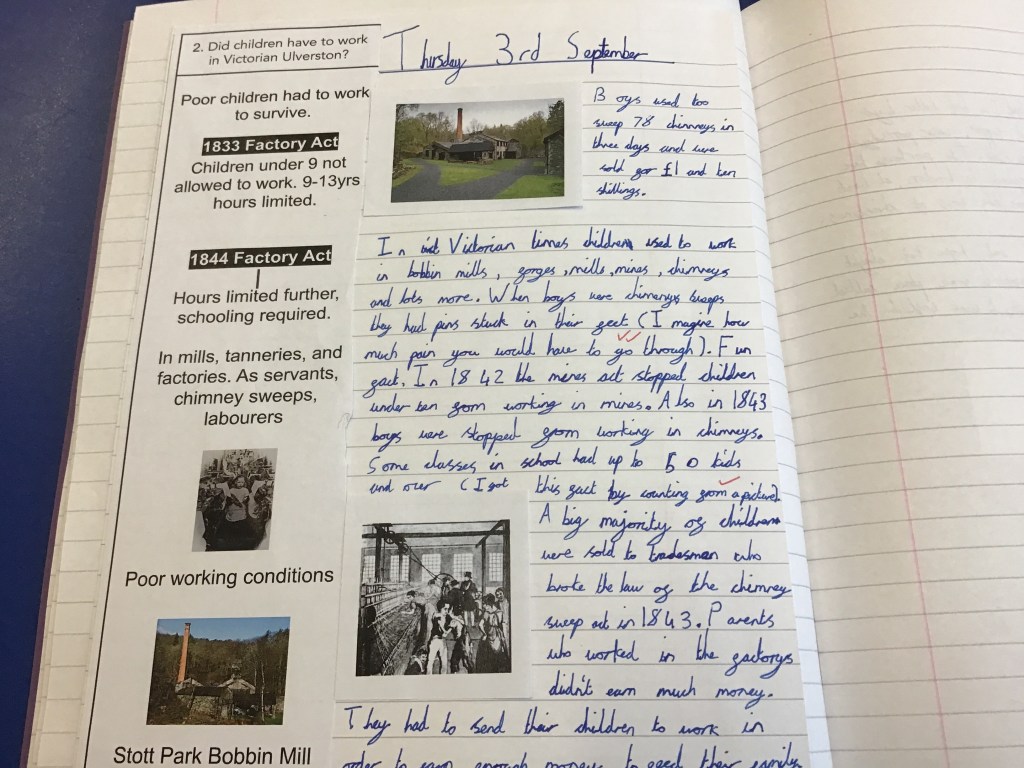 2. Did children have to work
in Victorian Ulverston?
Poor children had to work
to survive.
1833 Factory Act
Children under 9 not
allowed to work. 9-13yrs
hours limited.
1844 Factory Act
Hours limited further,
schooling required.
In mills, tanneries, and
factories. As servants,
chimney sweeps,
labourers
Poor working conditions
Stott Park Bobbin Mill
Thursday 3rd September
Boys used too
sweep 78 chimneys in
three days and were
sold for £1 and ten
shillings.
In Victorian times children used to work
in bobbin mills, forges, mills, mines, chimneys
and lots more. When boys were
they had pins stuck in their feet (Imagine how
much pain you would have to go through). Fun
fact, In 1842 the mines act stopped children
under ten from working in mines. Also in 1843
boys were stopped from working in chimneys.
Some classes in school had up to 50 kids
and over (I got this fact by counting from a picture).
A big majority of children
were sold to tradesman who
broke the law of the chimney
sweep act in 1843. Parents
who worked in the factorys
didn't earn much money.
They had to send their children to work in
order to earn enough money to feed their family